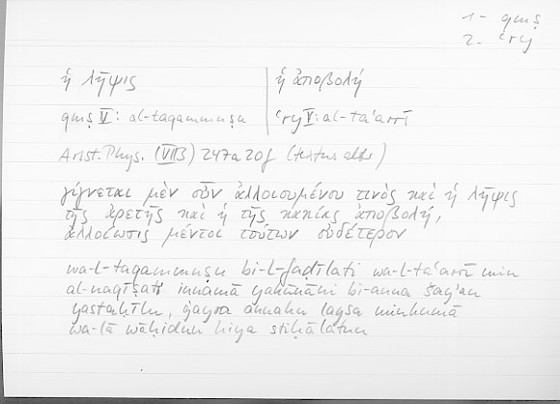 1 - qmṣ
2. - ʿry
ἡ λῆψις
ἡ ἀποβολή
qmṣ V : al-taqammuṣu
ʿry V : al-taʿarrī
Arist. Phys. (VII 3) 247a 20f (textus alter)
γίγνεται μὲν οὖν ἀλλοιουμένου τινὸς καὶ ἡ λῆψις
τῆς ἀρετῆς καὶ ἡ τῆς κακίας ἀποβολή,
ἀλλοίωσις μέντοι τούτων οὐδέτερον
wa-l-taqammuṣu bi-l-faḍīlati wa-l-taʿarrī min
al-naqīṣati innamā yakūnāni bi-anna šayʾan
yastaḥīlu, ġayra annahu laysa minhumā
wa-lā wāḥidun hiya stiḥālatun